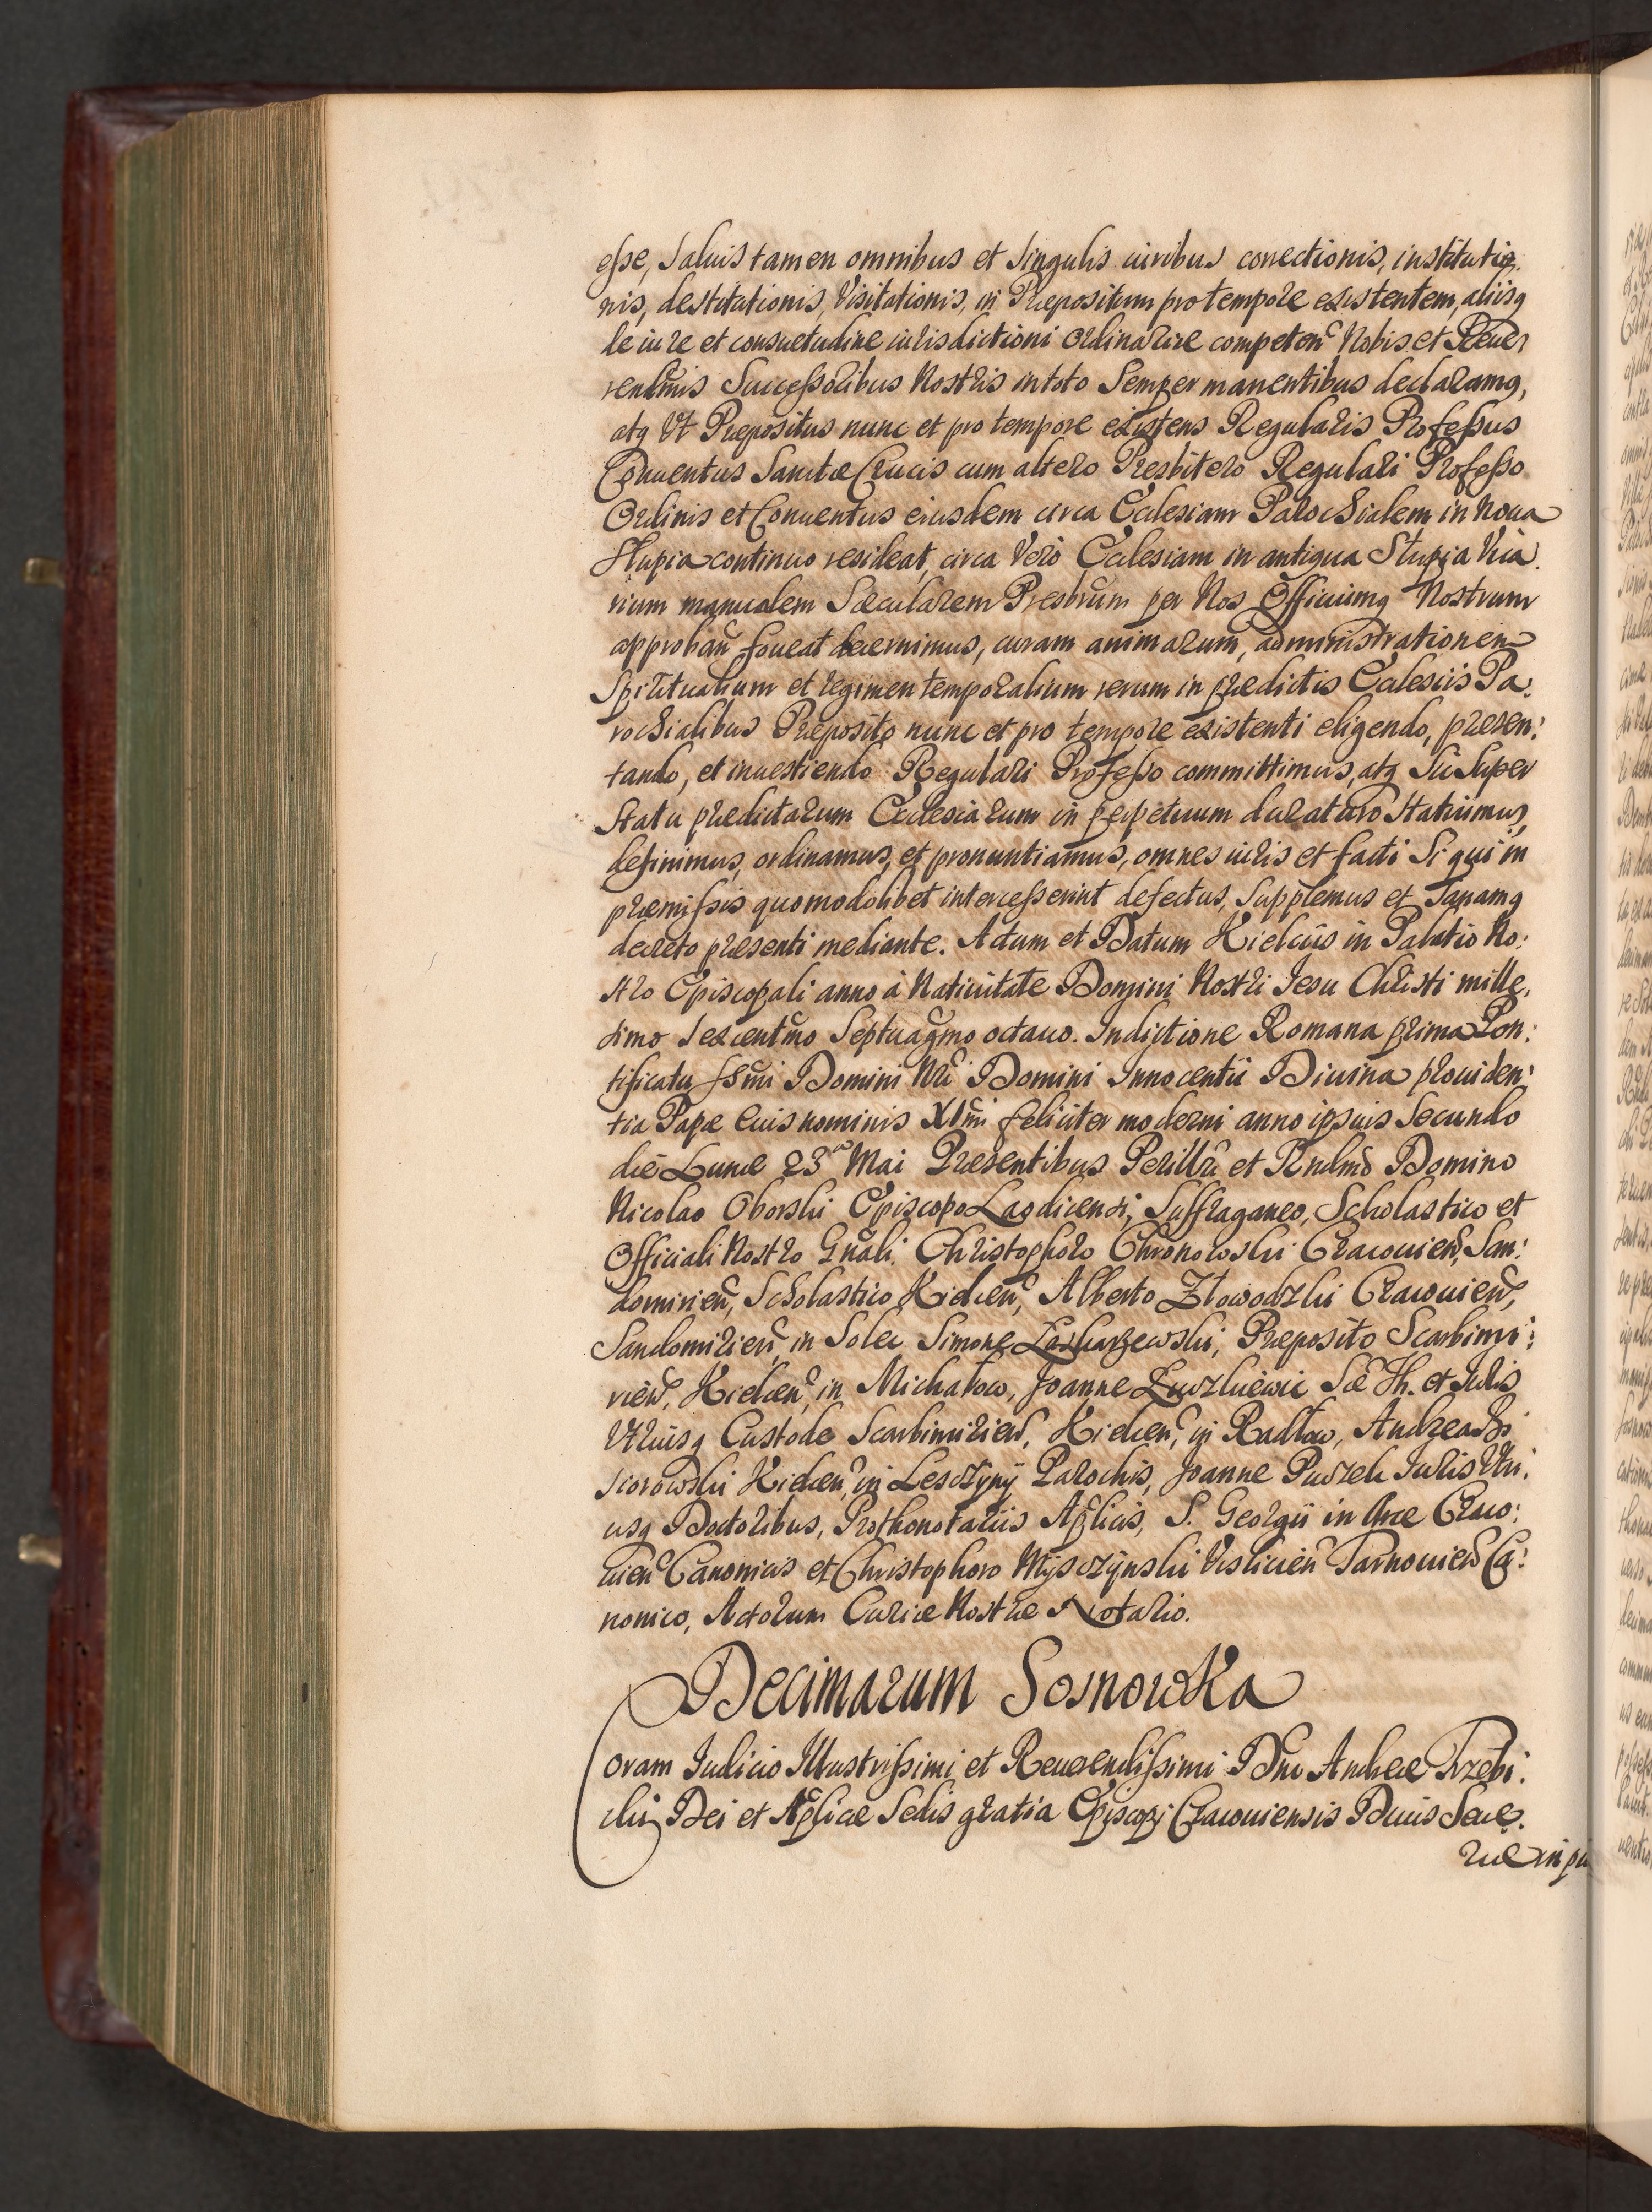 esse, Saluis tamen omnibus et Singulis iuribus correctionis, institutio.
nis, destitutionis, Visitationis, in Præpositum pro tempore existentem, aliisq
de iure et consuetudine iurisdictioni Ordinariæ competeñ Nobis et Reue
rendmis Successoribus Nostris in toto Semper manentibus declaramq,
atq Vt Præpositus nunc et pro tempore existens Regularis Professus
Conuentus Sanctæ Crucis cum altero Presbitero Regulari Professo
Ordinis et Conuentus eiusdem circa Ecclesiam Parochialem in Noua
Slupia continuo resideat, circa Vero Ecclesiam in antiqua Slupia Vica.
rium manualem Sæcularem Presbrum per Nos Officiumq Nostrum
approbañ foueat decernimus, curam animarum, administrationem
Spiritualium et regimen temporalium rerum in prædictis Ecclesiis Pa:
rochialibus Præposito nunc et pro tempore existenti eligendo, præsen:
tando, et inuestiendo Regulari Professo committimus, atq Su Super
Statu prædictarum Ecclesiarum in perpetuum duraturo Statuimus,
definimus, ordinamus, et pronuntiamus, omnes iuris et facti Si qui in
præmissis quomodolibet intercesserint defectus, Supplemus et Sanamq
decreto præsenti mediante. Actum et Datum Kielciis in Palatio No:
stro Episcopali anno à Natiuitate Domini Nostri Iesu Christi mille,
simo Sexcentmo Septuagmo octauo. Indictione Romana prima Pon:
tificatu SSmi Domini Nri Domini Innocentii Diuina prouiden:
tia Papæ Euis nominis XImi feliciter moderni anno ipsius Secundo
die Lunæ 23a Mai Præsentibus Perillri et Rndmo Domino
Nicolao Oborski Episcopo Laodicensi, Suffraganeo, Scholastico et
Officiali Nostro Gnali, Christophoro Chronowski Cracouień, San:
domirień, Scholastico Kielceñ, Alberto Złowodzki Cracouień,
Sandomirień, in Solec Simone Laskarzewski, Præposito Scarbimi:
rień, Kielceñ, in Michałow, Joanne Luszkiewic Sæ Th. et Iuris
Vtriusq Custode Scarbimirień, Kielceñ, in Radłow, Andrea
Kielceñ, in Leszczyny Parochis, Joanne Puszek Iuris Vtri:
usq Doctoribus, Prothonotariis Aplicis, S. Georgii in Arce Craco:
uień Canonicis et Christophoro Mysczynski Vislicień Tarnouień Ca:
nonico, Actorum Curiæ Nostræ Notario.
Decimarum Sosnowka
Coram Iudicio Illustrissimi et Reuerendissimi Dñi Andreæ Trzebi:
cki Dei et Aplicæ Sedis gratia Episcopi Cracouiensis Ducis Seue.
riæ in